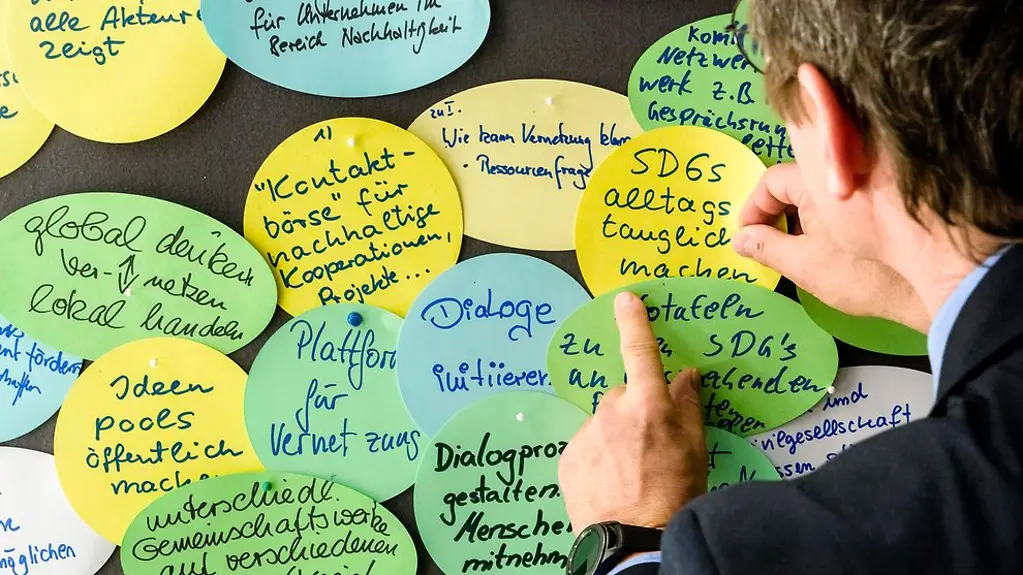 alle Akteure
zeigt
für Unternehmen im
Bereich Nachhaltigkeit
Netzwer
werk z.B
Gesprächsrun
zu I.
Wie kann Vernetzung
- Ressourcenfrage
1)
"Kontakt-
börse" für
nachhaltige
Kooperationen,
Projekte...
SDGs
alltags
tauglich
machen
global denken
ver- ↕ netzen
lokal handeln
Dialoge
initiieren
otafeln
zu en SDG's
an henden
Plattform
für
Vernetzung
Ideen
pools
öffentlich
machen
und
ivilgesellschaft
fördern
Dialogproz
gestalten.
Menschen
mitnehm
unterschiedl.
Gemeinschaftswerke
auf verschiedenen
öglichen